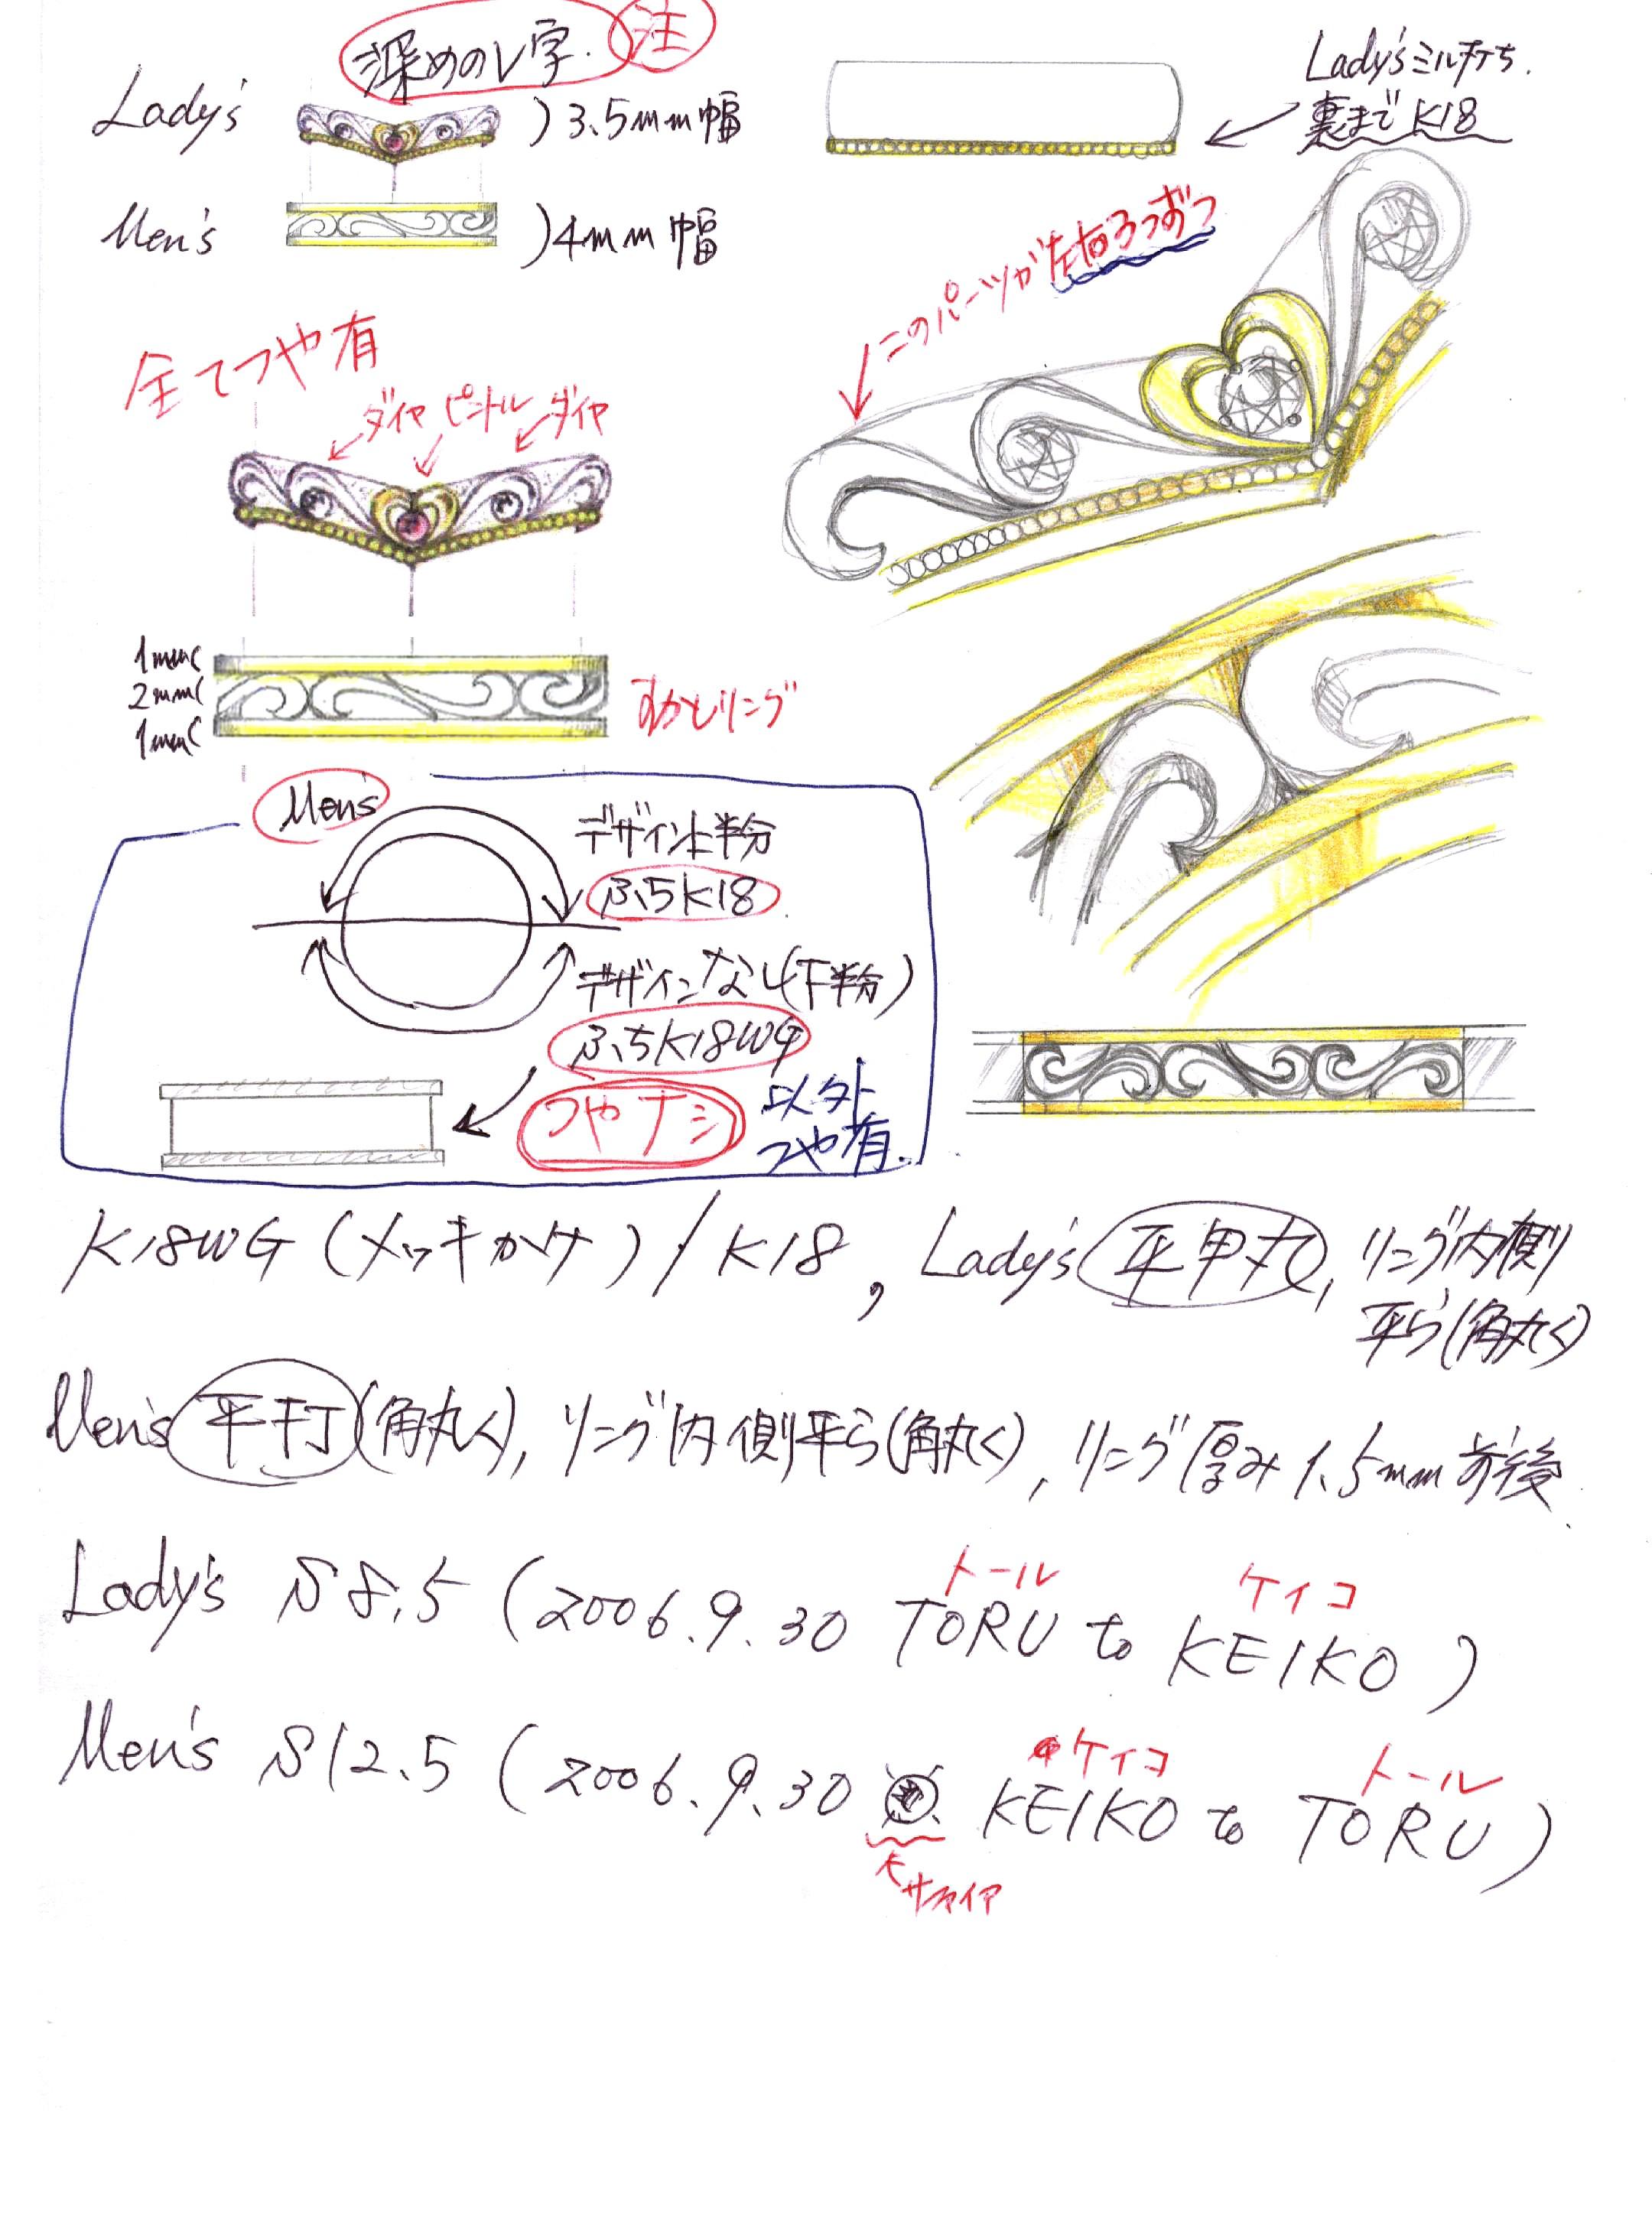 深めのV字. 注
Lady's )3.5mm幅
Men's )4mm幅
Lady'sミル打ち.
裏までK18
このパーツが左右3つずつ
全てつや有
ダイヤ ピンクトルマリン ダイヤ
1mm(
2mm(
1mm(
すかしリング
Men's
デザイン上半分
ふちK18
デザインなし(下半分)
ふちK18WG
つやナシ
以外
つや有.
K18WG(メッキかけ)/K18, Lady's 平甲丸, リング内側
平ら(角丸く)
Men's 平打(角丸く), リング内側平ら(角丸く), リング厚み1.5mm前後.
トール ケイコ
Lady's S8.5 (2006.9.30 TORU to KEIKO)
ケイコ トール
Men's S12.5 (2006.9.30 KEIKO to TORU)
サファイア